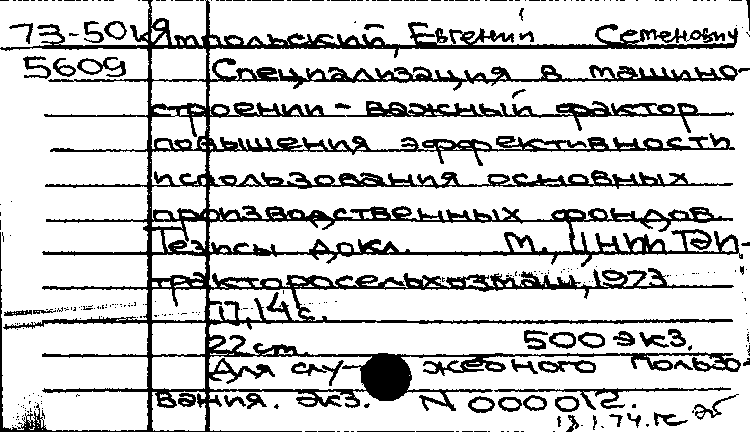 73-50к Ямпольский, Евгений Семенович
5609 Специализация в машино-
строении - важный фактор
повышения эффективности
использования основных
производственных фондов.
Тезисы докл. М., ЦНИИТЭИ-
трактросельхозмаш, 1973
17, 14 с.
22 см. 500 экз.
Для слу- жебного пользо-
вания. Экз. N 000012.
18.1.74.